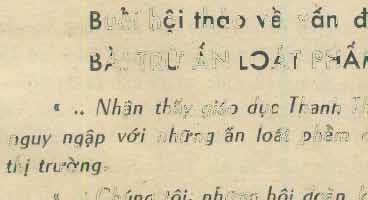 Buổi hội thảo về vấn đ
BÀI TRỪ ẤN LOÁT PHẨM
« .. Nhận thấy giáo dục Thanh Th
nguy ngập với những ấn loát phẩm
thị trường.
« . . Chúng tôi, những hội đoàn,